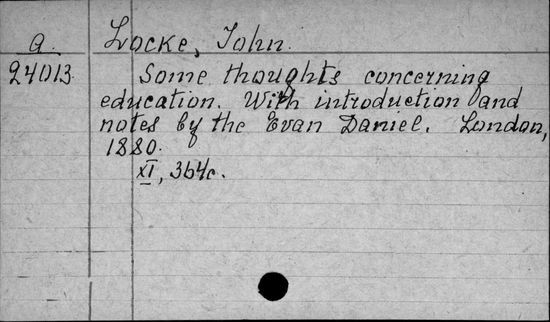 a. Locke, John.
24013 Some thoughts concerning
education. With introduction and
notes by the Evan Daniel. London,
1880.
XI, 364c.